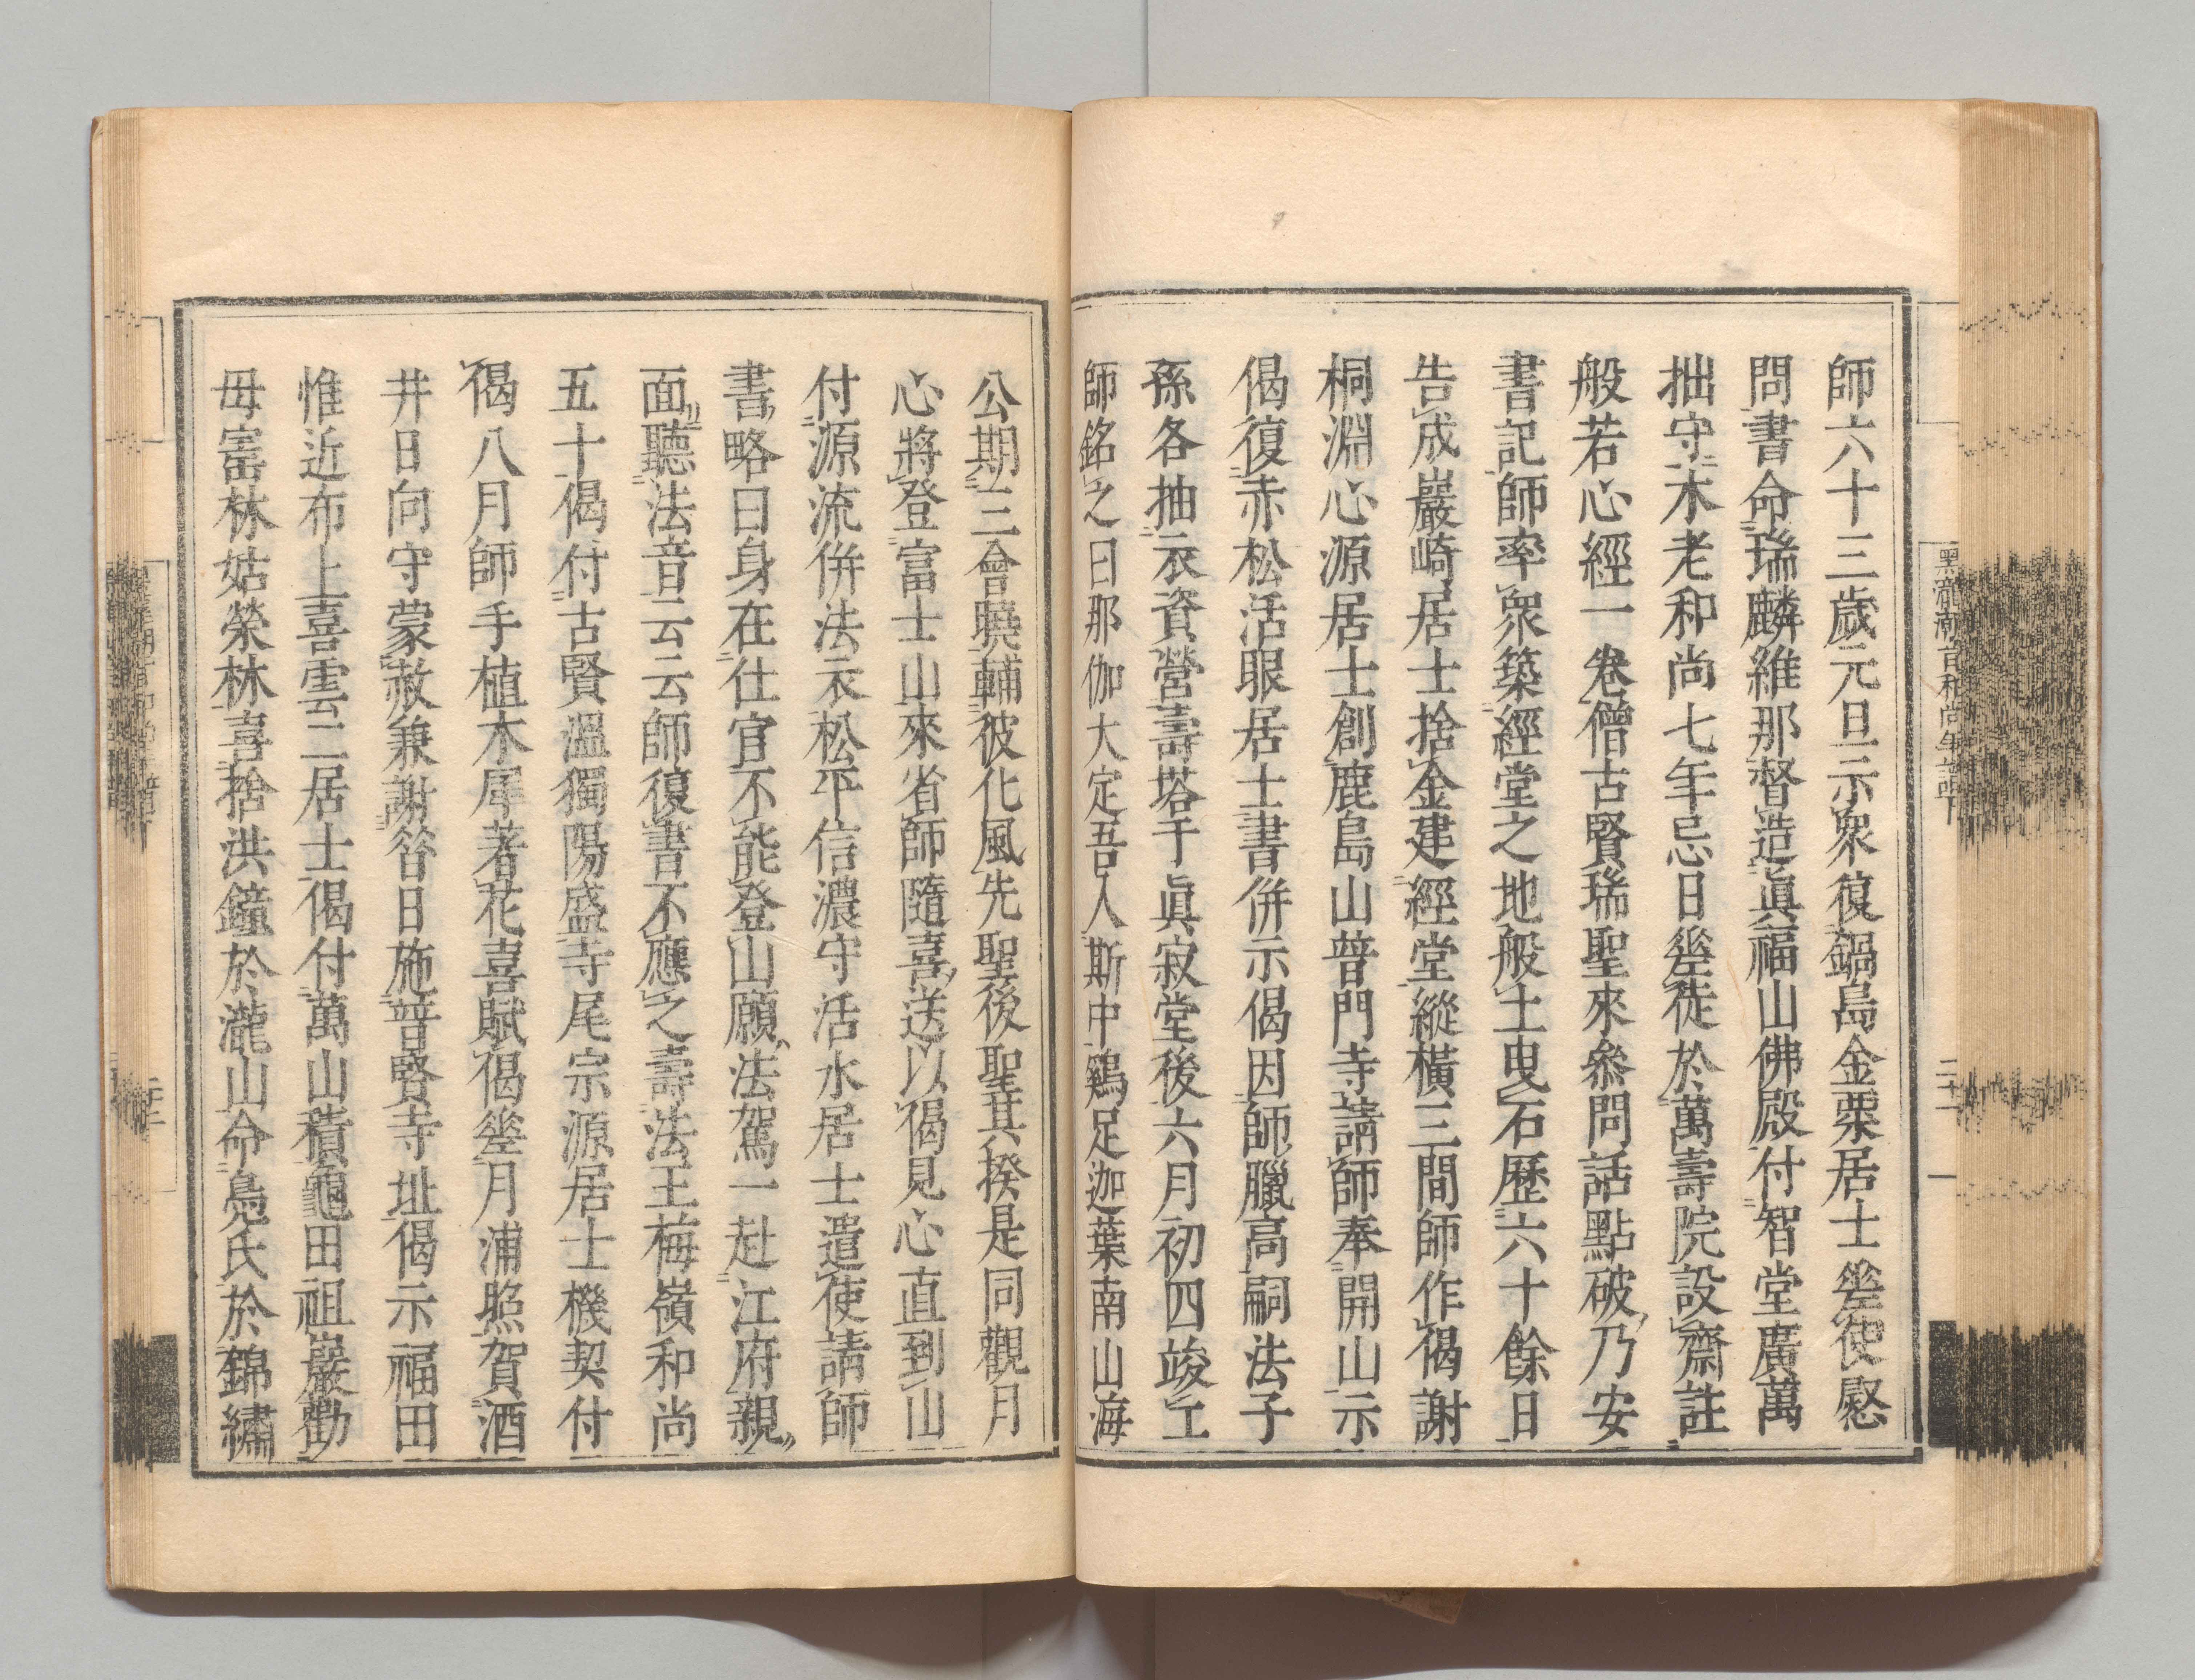 師六十三歲元旦示衆復鍋島金栗居士差使慰
問書命瑞麟維那督造眞福山佛殿付智堂廣萬
拙守木老和尚七年忌日差徒於萬壽院設齋註
般若心經一卷僧古賢瑞聖來叅問話點破乃安
書記師率衆築經堂之地般土曳石歷六十餘日
告成巖崎居士捨金建經堂縱橫三間師作偈謝
桐淵心源居士創鹿島山普門寺請師奉開山示
偈復赤松活眼居士書併示偈因師臘高嗣法子
孫各抽衣資營壽塔于眞寂堂後六月初四竣工
師銘之曰那伽大定吾人斯中鷄足迦葉南山海
公期三會曉輔彼化風先聖後聖其揆是同觀月
心將登富士山來省師隨喜送以偈見心直到山
付源流併法衣松平信濃守活水居士遣使請師
書略曰身在仕官不能登山願法駕一赴江府親
面聽法音云云師復書不應之壽法王梅嶺和尚
五十偈付古賢溫獨陽盛寺尾宗源居士機契付
偈八月師手植木犀著花喜賦偈差月浦照賀酒
井日向守蒙赦兼謝答日施普賢寺址偈示福田
惟近布上喜雲二居士偈付萬山積龜田祖巖勸
母富林姑榮林喜捨洪鐘於瀧山命鳧氏於錦繡